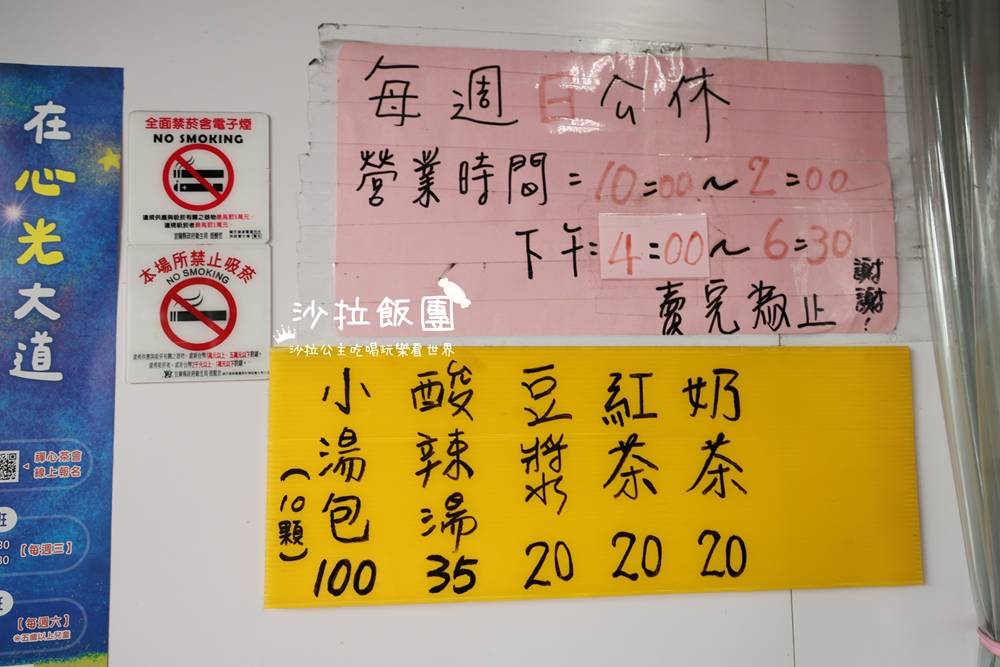 在心光大道
禪心茶會
線上報名
【每週三】
【每週六】
全面禁菸含電子煙
NO SMOKING
本場所禁止吸菸
NO SMOKING
每週日公休
營業時間=10=00~2=00
下午=4=00~6=30
賣完為止
謝謝!
沙拉飯團
沙拉公主吃喝玩樂看世界
小湯包(10顆)100
酸辣湯35
豆漿20
紅茶20
奶茶20